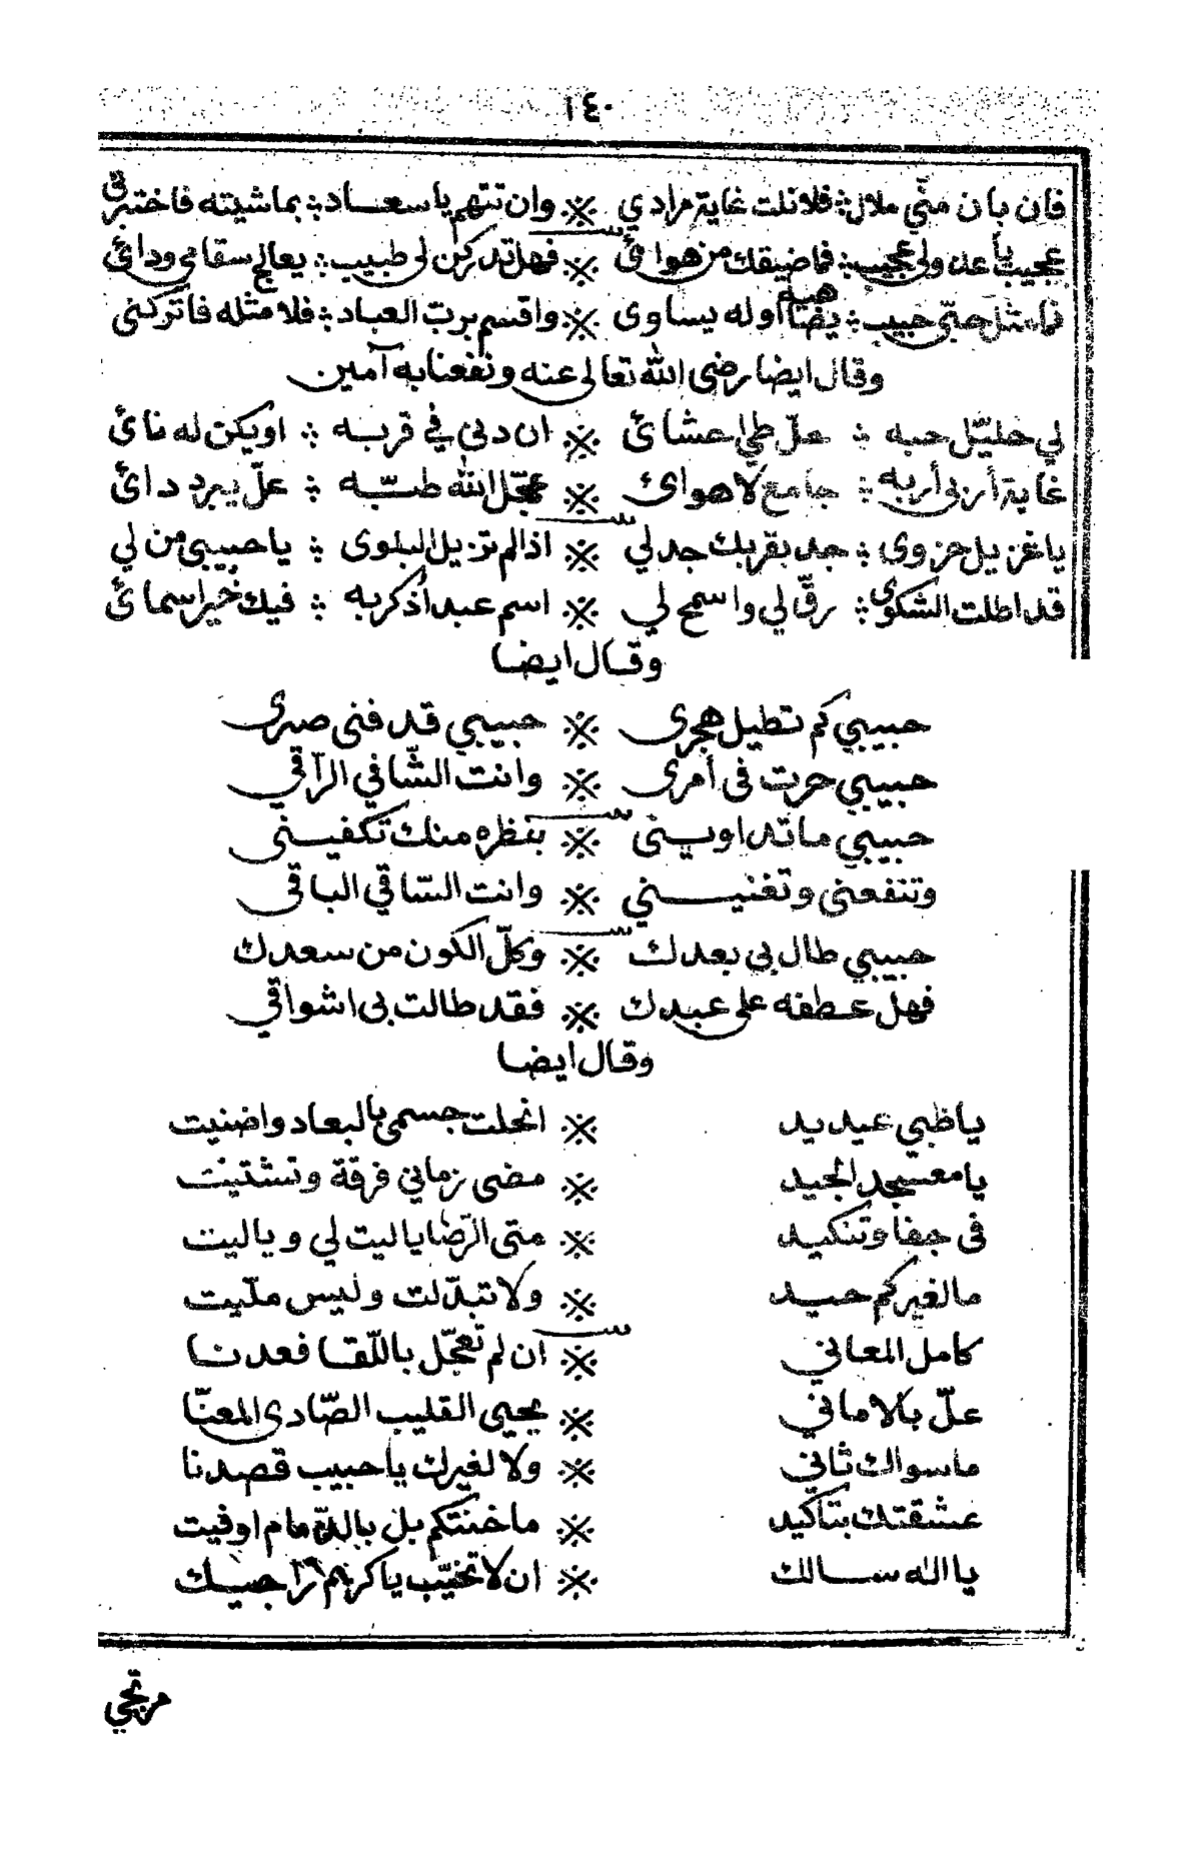 ١٤٠
فان بان منّي ملال ؞ فلا نلت غاية مرادي ※ وان تتهم يا سعاد ؞ بما شيته فاختبرني
عجيب يا عذولي عجيب ؞ فما ضيقك من هوائ ※ فهل تدركن لي طبيب ؞ يعالج سقامي ودائ
فما مثل حبّي حبيب ؞ يضاهيه أو له يساوى ※ واقسم برب العباد ؞ فلا مثله فاتركنى
وقال ايضا رضى الله تعالى عنه ونفعنا به آمين
لي خليّل حبه ؞ علّ طي احشائ ※ ان دنى في قربه ؞ او يكن له نائ
غاية أربى أربه ؞ جامع لاهوائ ※ عجّل الله طبّه ؞ علّ يبرد دائ
يا غزيل حزوى ؞ جد بقربك جد لي ※ اذا لم تزيل البلوى ؞ يا حبيبي من لي
قد اطلت الشكوى ؞ رقّ لي واسمح لي ※ اسم عبد أذكر به ؞ فيك خير اسمائ
وقال ايضا
حبيبي كم تطيل هجرى ※ حبيبي قد فنى صبرى
حبيبي حرت فى أمرى ※ وانت الشّافي الرّاقي
حبيبي ما تداوينى ※ بنظره منك تكفينى
وتنفعنى وتغنيني ※ وانت السّاقي الباقى
حبيبي طال بي بعدك ※ وكلّ الكون من سعدك
فهل عطفه على عبدك ※ فقد طالت بى اشواقي
وقال ايضا
يا ظبي عيديد ※ انحلت جسمى بالبعاد واضنيت
يا معسجد الجيد ※ مضى زماني فرقة وتشتيت
فى جفا وتنكيد ※ متى الرّضا يا ليت لي ويا ليت
ما لغيركم حيد ※ ولا تبدّلت وليس ملّيت
كامل المعاني ※ ان لم تعجّل باللّقا فعدنا
علّ بالاماني ※ يحيى القليب الصّادى المعنّا
ما سواك ثاني ※ ولا لغيرك يا حبيب قصدنا
عشقتك بتاكيد ※ ما خنتكم بل بالذّمام اوفيت
يا اله سالك ※ ان لا تخيّب يا كريم راجيك
مرتجي